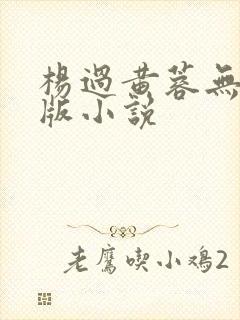 楊過黃蓉無
版小說
老鷹喫小鸡2